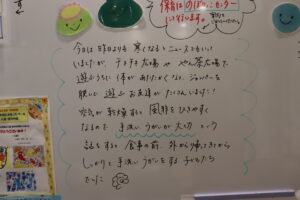 保育は のぼり センター
今日は 昨日よりも 寒くなると ニュースでもいい
ましたが、テラテラ広場 や やん茶広場で
遊ぶうちに 体が あたたかくなり、ジャンパーを
脱いで 遊ぶ お友達が たくさんいました!!
空気が 乾燥すると 風邪を ひきやすく
なるので 手洗い うがいが 大切 という
話をすると 食事の前、外から 帰ってきてから
しっかりと 手洗い うがいをする 子どもたち
でした